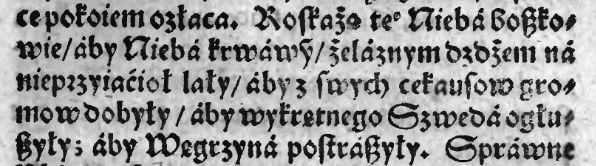 ce pokoiem ozłaca. Roſkażą teº Niebá Boſko⸗
wie/ áby Niebá krwáwy/ żeláznym dżdżem ná
nieprzyiaćioł lały/ áby z ſwych cekauſow gro⸗
mow dobyły / áby wykrętnego Szwedá ogłu⸗
ßyły; áby Węgrzyná poſtráßyły. Spráwne